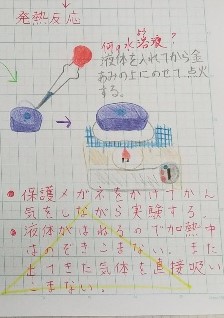 発熱反応
何の水溶液?
液体を入れてから金
あみの上にのせて点火
する。
● 保護メガネをかけてかん
気をしながら実験する。
● 液体がはねるので加熱中
はのぞきこまない。また
出てきた気体を直接吸い
こまない。